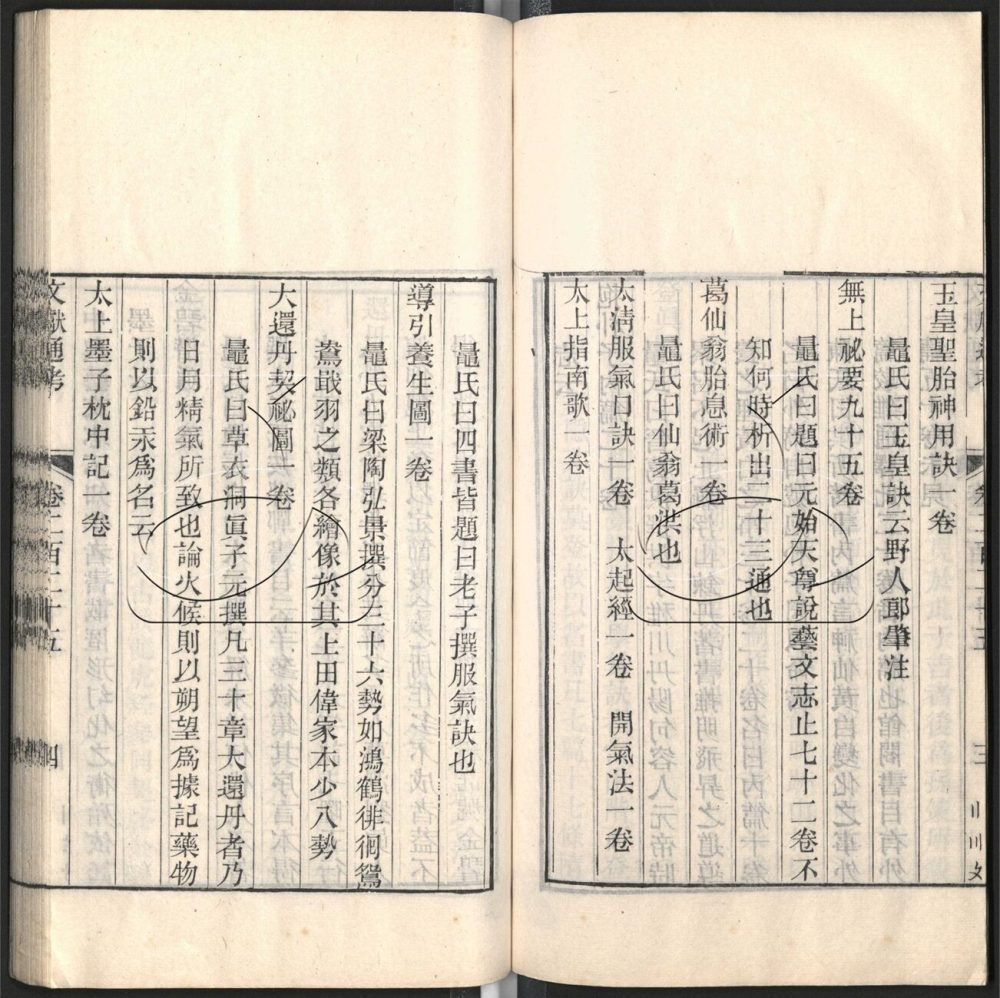 玉皇聖胎神用訣一卷
鼂氏曰玉皇訣云野人郎肇注
無上祕要九十五卷
鼂氏曰題曰元始天尊說藝文志止七十二卷不
知何時析出二十三通也
葛仙翁胎息術一卷
鼂氏曰仙翁葛洪也
太淸服氣口訣一卷　太起經一卷　開氣法一卷
太上指南歌一卷
鼂氏曰四書皆題曰老子撰服氣訣也
導引養生圖一卷
鼂氏曰梁陶弘景撰分三十六勢如鴻鶴徘徊鴛
鴦戢羽之類各繪像於其上田偉家本少八勢
大還丹契祕圖一卷
鼂氏曰草衣洞眞子元撰凡三十章大還丹者乃
日月精氣所致也論火候則以朔望爲據記藥物
則以鉛汞爲名云
太上墨子枕中記一卷
文獻通考　卷二百二十五　四